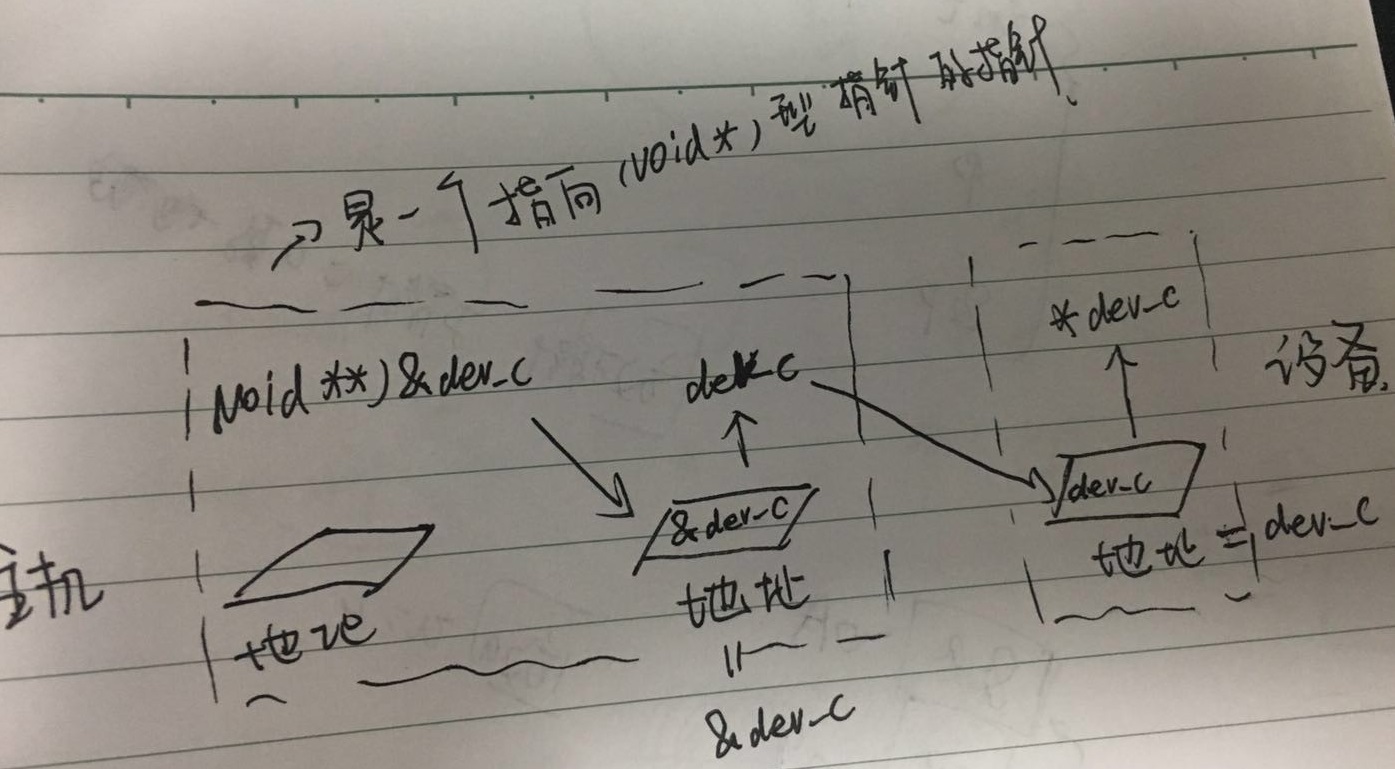 是一个指向(void*)型指针的指针.
(void**)&dev_c
dev_c
*dev_c
设备.
&dev_c
dev_c
主机
地址
地址
地址=dev_c
=
&dev_c